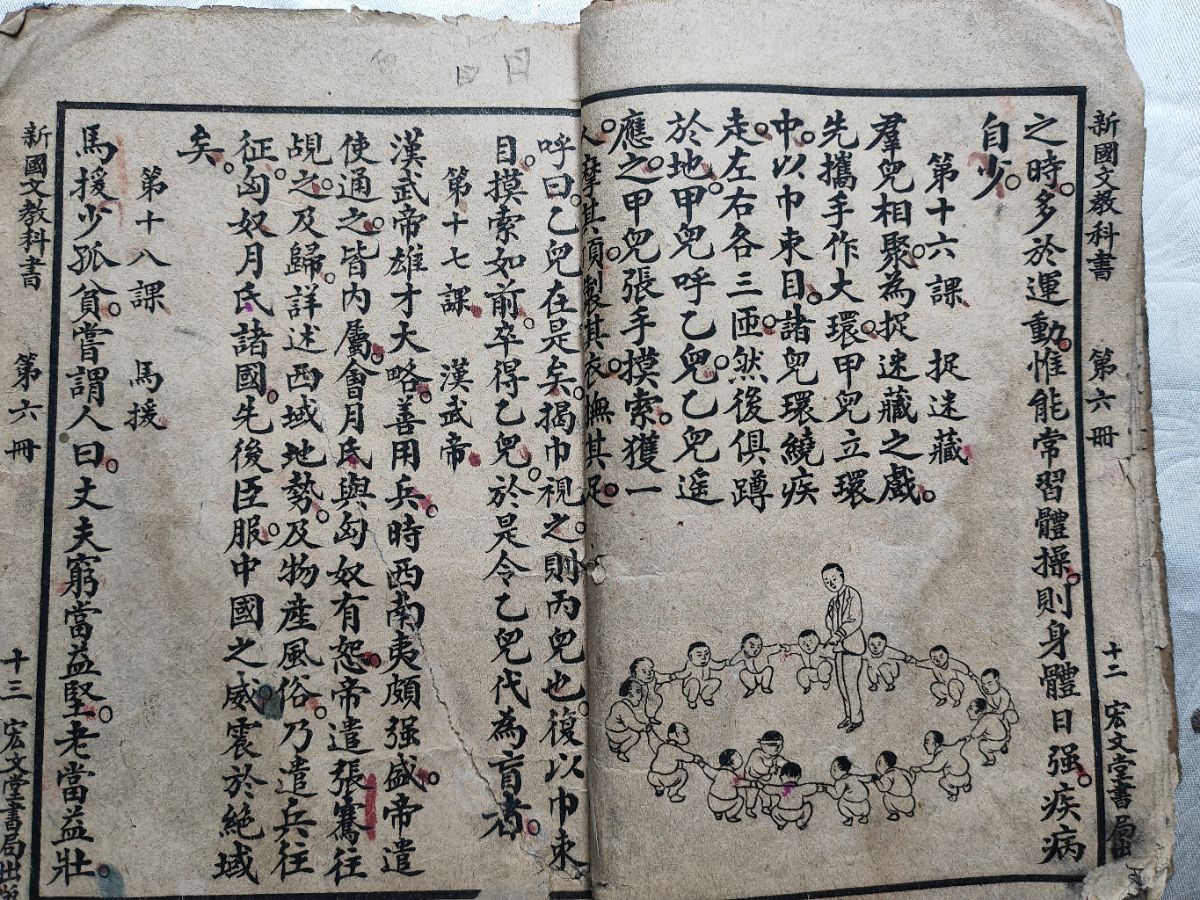 新國文教科書 第六冊 十二 宏文堂書局出
之時。多於運動。惟能常習體操。則身體日强。疾病
自少。
第十六課 捉迷藏
羣兒相聚。為捉迷藏之戲。
先攜手作大環。甲兒立環
中。以巾束目。諸兒環繞疾
走。左右各三匝。然後俱蹲
於地。甲兒呼乙兒。乙兒遥
應之。甲兒張手摸索。獲一
人。摩其頂。製其衣。撫其足。
呼曰。乙兒在是矣。揭巾視之。則丙兒也。復以巾束
目。摸索如前。卒得乙兒。於是令乙兒代為盲者。
第十七課 漢武帝
漢武帝雄才大略。善用兵。時西南夷頗强盛。帝遣
使通之。皆内屬。會月氏與匈奴有怨。帝遣張騫往
覘之。及歸。詳述西域地勢。及物產風俗。乃遣兵往
征。匈奴月氏諸國。先後臣服。中國之威。震於絶域
矣。
第十八課 馬援
馬援少孤貧。嘗謂人曰。丈夫窮當益堅。老當益壯。
新國文教科書 第六冊 十三 宏文堂書局出版